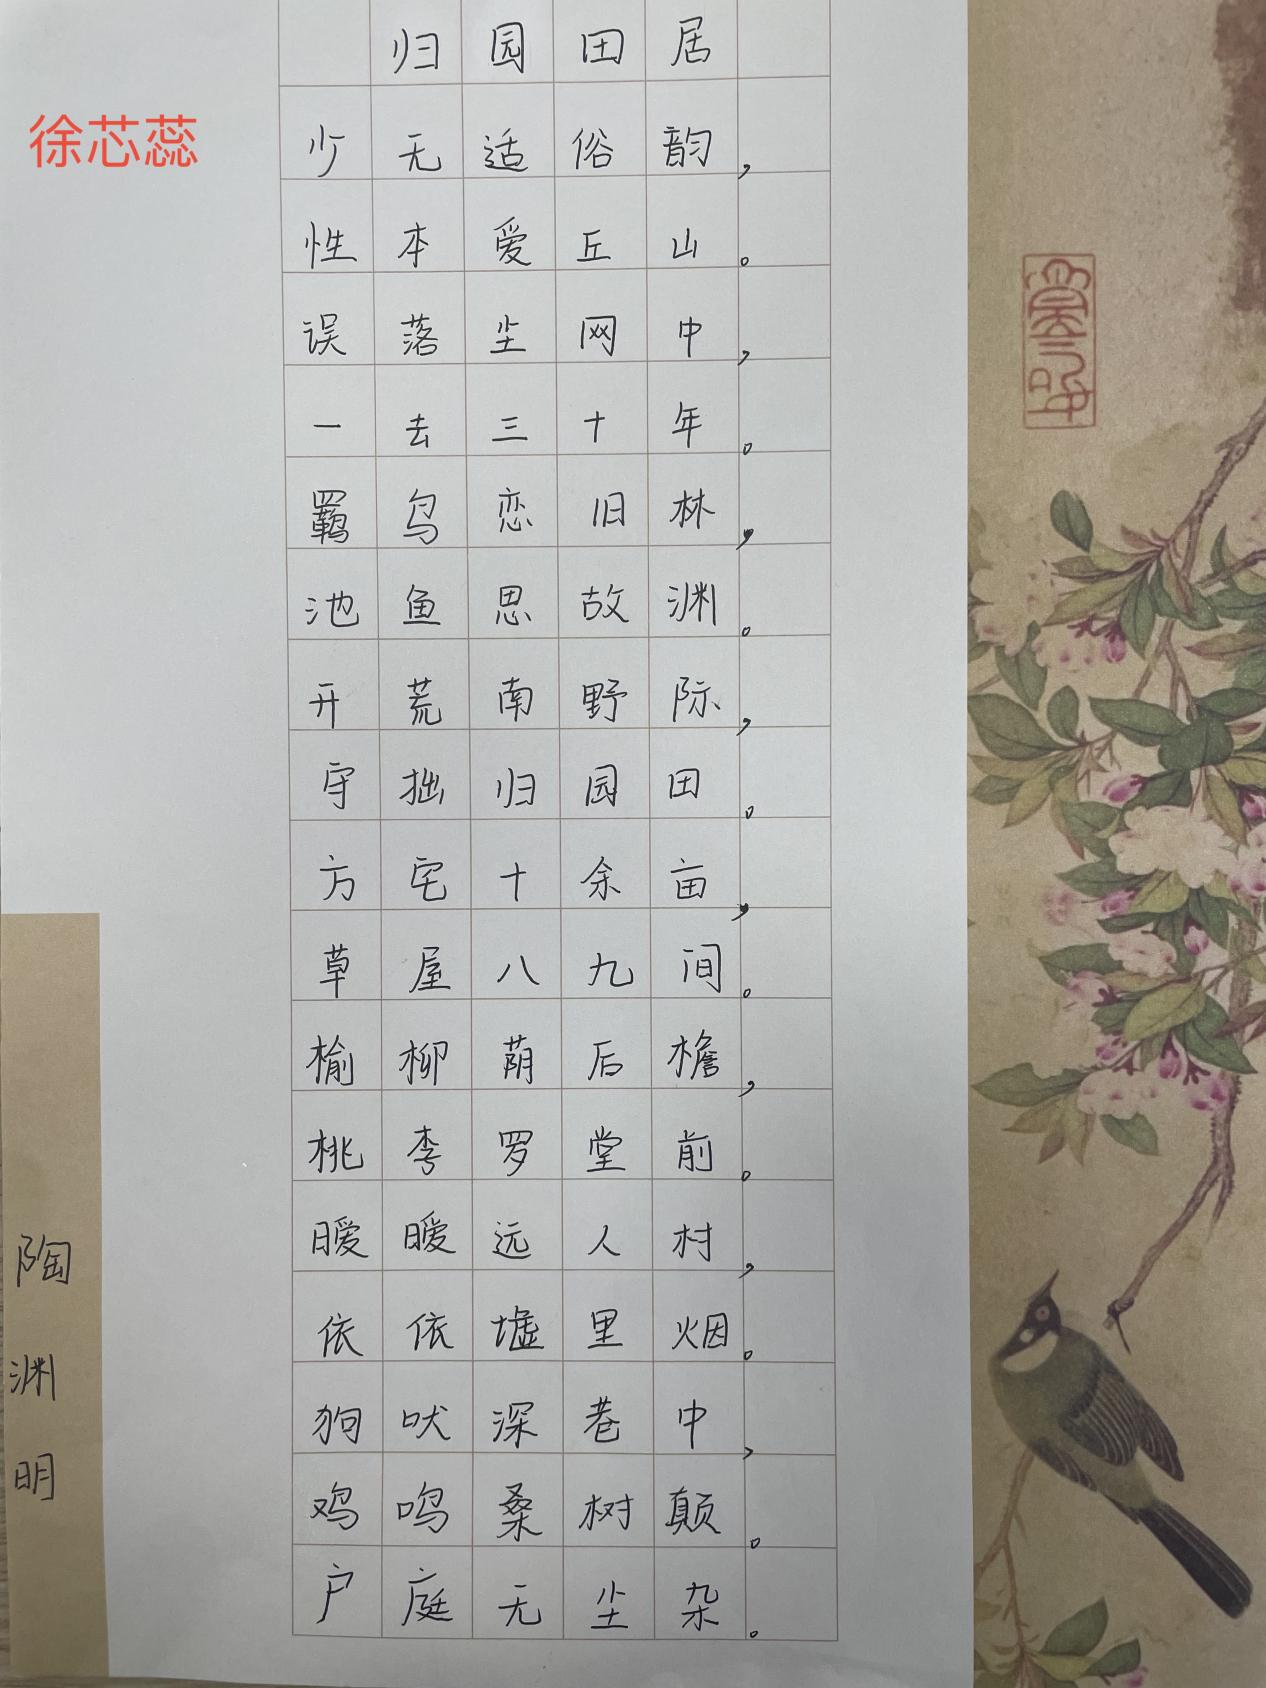 归园田居
徐芯蕊
少无适俗韵，
性本爱丘山。
误落尘网中，
一去三十年。
羁鸟恋旧林，
池鱼思故渊。
开荒南野际，
守拙归园田。
方宅十余亩，
草屋八九间。
榆柳荫后檐，
桃李罗堂前。
暧暧远人村，
依依墟里烟。
狗吠深巷中，
鸡鸣桑树颠。
户庭无尘杂。
陶渊明